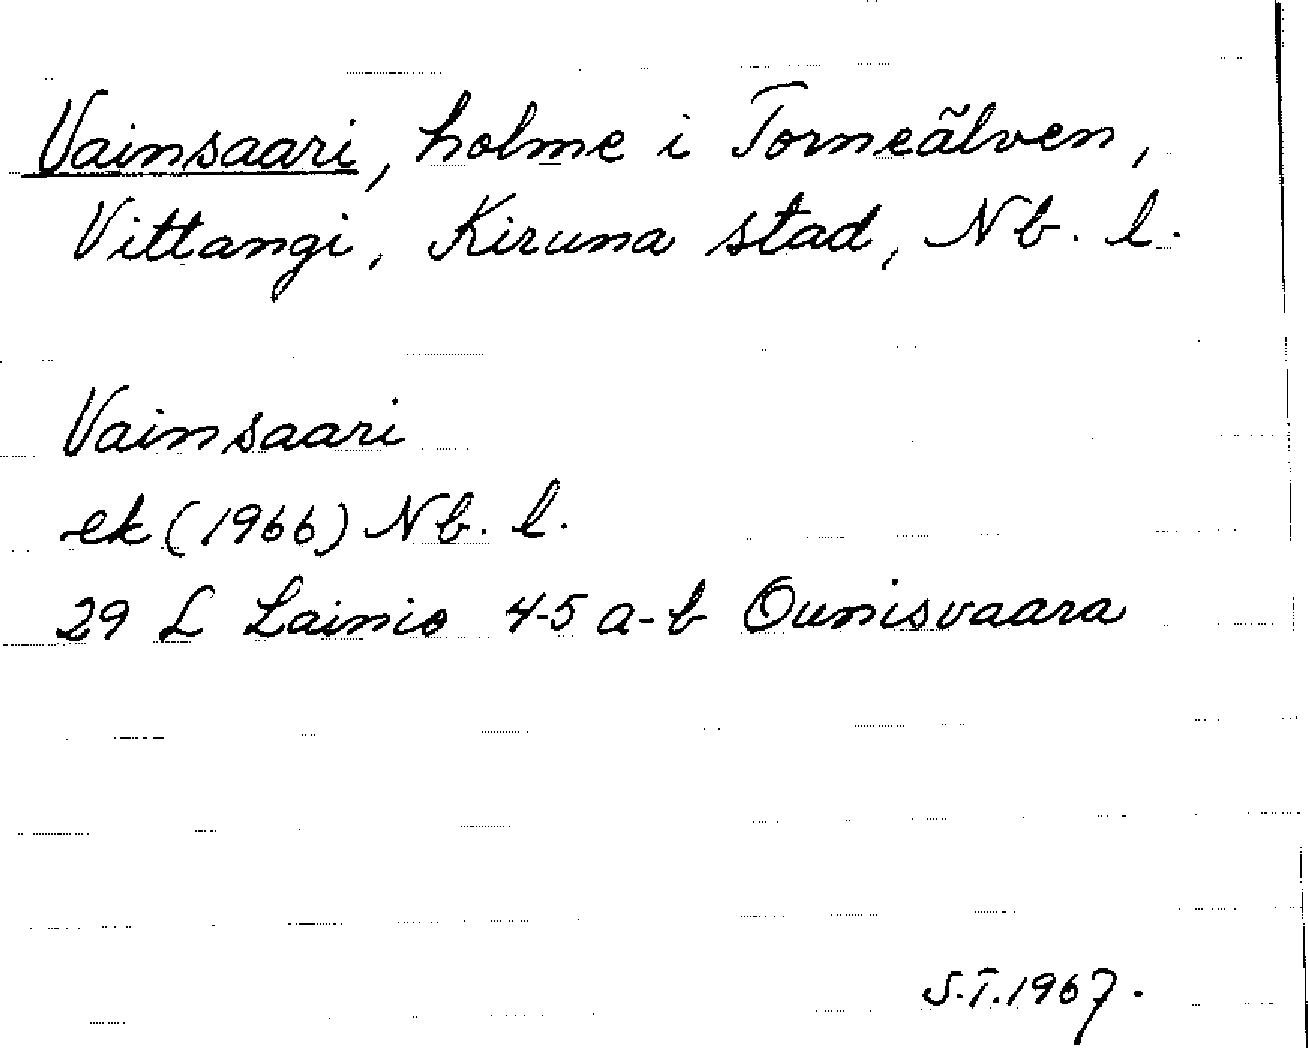 Vainsaari, holme i Torneälven,
Vittangi, Kiruna stad, Nb. l.
Vainsaari
ek (1966) Nb. l.
29 L Lainio 4-5 a-b Ounisvaara
S.T. 1967.